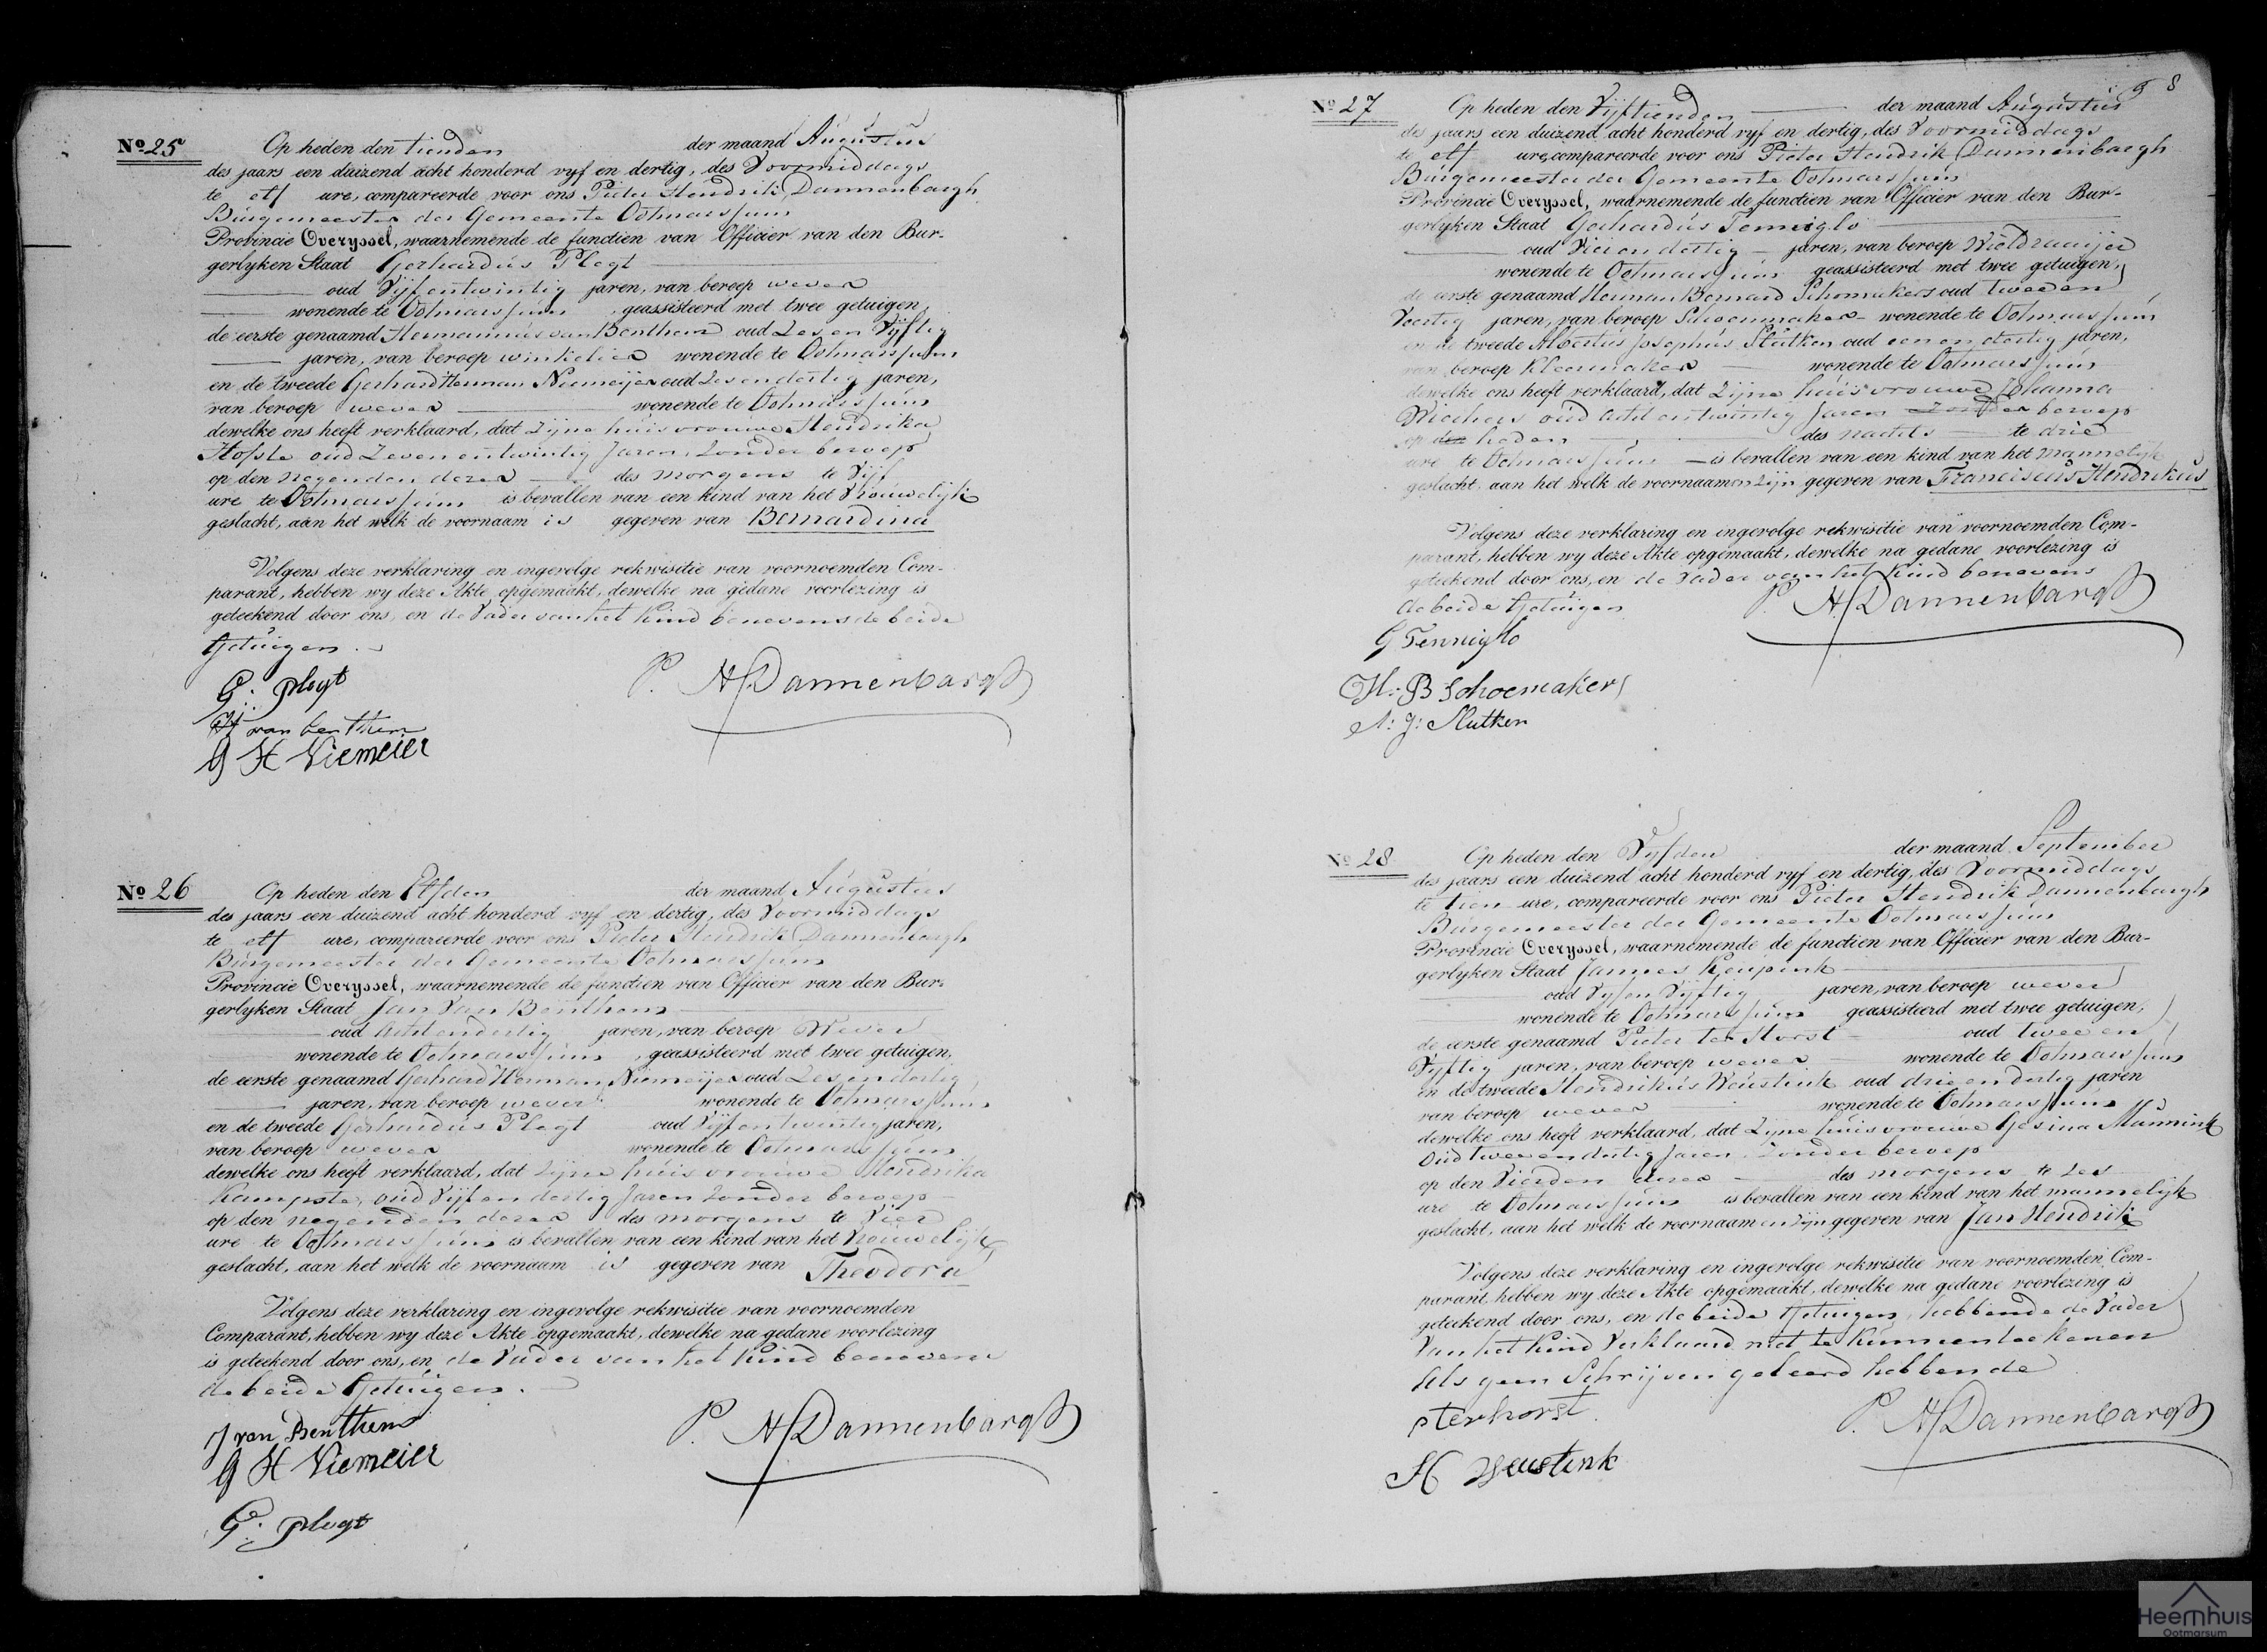 No 25
Op heden den tienden der maand Augustus
des jaars een duizend acht honderd vyf en dertig, des Voormiddags
te elf ure, compareerde voor ons Pieter Hendrik Dannenbargh
Burgemeester der Gemeente Ootmarssum
Provincie Overyssel, waarnemende de functien van Officier van den Bur-
gerlyken Staat Gerhardus Plegt
oud Vijfentwintig jaren, van beroep wever
wonende te Ootmarssum, geassisteerd met twee getuigen,
de eerste genaamd Hermannus van Benthem oud Zes en Vijftig
jaren, van beroep winkelier wonende te Ootmarssum
en de tweede Gerhard Herman Niemeijer oud Zes en dertig jaren,
van beroep wever wonende te Ootmarssum
dewelke ons heeft verklaard, dat Zijne huisvrouwe Hendrika
Hofste oud Zeven entwintig Jaren, Zonder beroep
op den negenden dezer des morgens te Vijf
ure te Ootmarssum is bevallen van een kind van het Vrouwelijk
geslacht, aan het welk de voornaam is gegeven van Bernardina
Volgens deze verklaring en ingevolge rekwisitie van voornoemden Com-
parant, hebben wy deze Akte opgemaakt, dewelke na gedane voorlezing is
geteekend door ons, en de Vader van het Kind benevens de beide
Getuigen.
G: plegt
H van benthem
G H Niemeier
P. H Dannenbargh
No 26
Op heden den Elfden der maand Augustus
des jaars een duizend acht honderd vyf en dertig, des Voormiddags
te elf ure, compareerde voor ons Pieter Hendrik Dannenbargh
Burgemeester der Gemeente Ootmarssum
Provincie Overyssel, waarnemende de functien van Officier van den Bur-
gerlyken Staat Jan Van Benthem
oud achtendertig jaren, van beroep Wever
wonende te Ootmarssum, geassisteerd met twee getuigen,
de eerste genaamd Gerhard Herman Niemeijer oud Zes en dertig
jaren, van beroep wever wonende te Ootmarssum
en de tweede Gerhardus Plegt oud Vijfentwintig jaren,
van beroep wever wonende te Ootmarssum
dewelke ons heeft verklaard, dat Zijne huisvrouwe Hendrika
Kampste, oud Vijf en dertig Jaren Zonder beroep
op den negenden dezer des morgens te Vier
ure te Ootmarssum is bevallen van een kind van het Vrouwelijk
geslacht, aan het welk de voornaam is gegeven van Theodora
Volgens deze verklaring en ingevolge rekwisitie van voornoemden
Comparant, hebben wy deze Akte opgemaakt, dewelke na gedane voorlezing
is geteekend door ons, en de Vader van het Kind benevens
de beide Getuigen.
J van Benthem
G H Niemeier
G: plegt
P. H Dannenbargh
8
No 27
Op heden den Vijftienden der maand Augustus
des jaars een duizend acht honderd vyf en dertig, des Voormiddags
te elf ure, compareerde voor ons Pieter Hendrik Dannenbargh
Burgemeester der Gemeente Ootmarssum
Provincie Overyssel, waarnemende de functien van Officier van den Bur-
gerlyken Staat Gerhardus Tenniglo
oud Vier en dertig jaren, van beroep Wieldraaijer
wonende te Ootmarssum geassisteerd met twee getuigen,
de eerste genaamd Herman Bernard Schomakers oud twee en
Veertig jaren, van beroep Schoenmaker wonende te Ootmarssum
en de tweede Albertus Josephus Slutken oud een en dertig jaren,
van beroep Kleermaker wonende te Ootmarssum
dewelke ons heeft verklaard, dat Zijne huisvrouwe Johanna
Wiechers oud acht entwintig Jaren Zonder beroep
op den heden des nachts te drie
ure te Ootmarssum is bevallen van een kind van het mannelijk
geslacht, aan het welk de voornaamen zijn gegeven van Franciscus Hendrikus
Volgens deze verklaring en ingevolge rekwisitie van voornoemden Com-
parant, hebben wy deze Akte opgemaakt, dewelke na gedane voorlezing is
geteekend door ons, en de Vader van het Kind benevens
de beide Getuigen
P. H Dannenbargh
G Tenniglo
H: B Schoemakers
A: J: Slutken
No 28
Op heden den Vyfden der maand September
des jaars een duizend acht honderd vyf en dertig, des Voormiddags
te tien ure, compareerde voor ons Pieter Hendrik Dannenbargh
Burgemeester der Gemeente Ootmarssum
Provincie Overyssel, waarnemende de functien van Officier van den Bur-
gerlyken Staat Jannes Keupink
oud Vyf en Vijftig jaren, van beroep wever
wonende te Ootmarssum geassisteerd met twee getuigen,
de eerste genaamd Pieter ter Horst oud twee en
Vyftig jaren, van beroep wever wonende te Ootmarssum
en de tweede Hendrikus Weustink oud drie en dertig jaren
van beroep wever wonende te Ootmarssum
dewelke ons heeft verklaard, dat Zijne huisvrouwe Gesina Mannink
Oud twee en dertig Jaren, Zonder beroep
op den Vierden dezer des morgens te Zes
ure te Ootmarssum is bevallen van een kind van het mannelijk
geslacht, aan het welk de voornaamen zijn gegeven van Jan Hendrik
Volgens deze verklaring en ingevolge rekwisitie van voornoemden Com-
parant, hebben wy deze Akte opgemaakt, dewelke na gedane voorlezing is
geteekend door ons, en de beide Getuigen, hebbende de Vader
Van het Kind Verklaard niet te kunnen teekenen
Als geen Schrijven geleerd hebbende
P ter horst
H Weustink
P. H Dannenbargh
Heemhuis
Ootmarsum